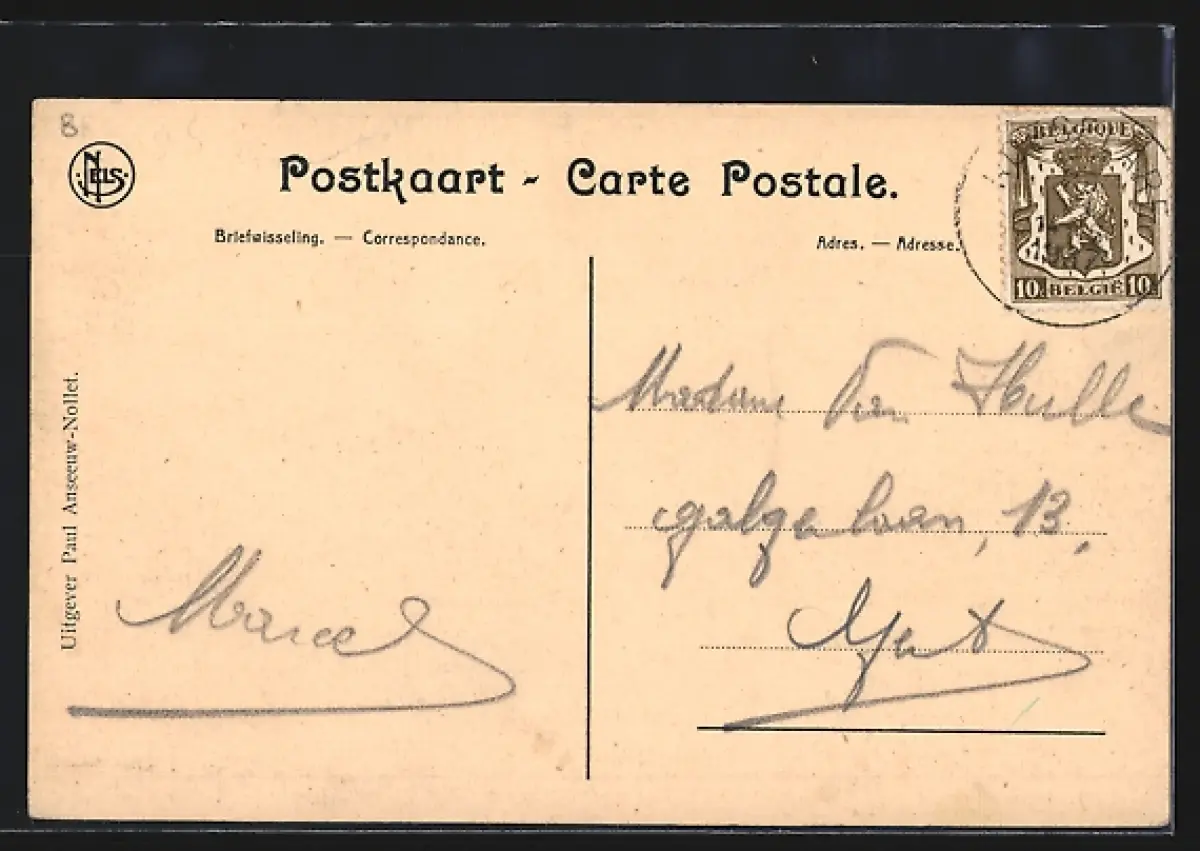 8
NELS
Postkaart - Carte Postale.
Briefwisseling. — Correspondance.
Adres. — Adresse.
BELGIQUE
10c BELGIË 10c
Uitgever Paul Anseeuw-Nollet.
Marcel
Madame Van Hulle
galgelaan, 13,
Gent